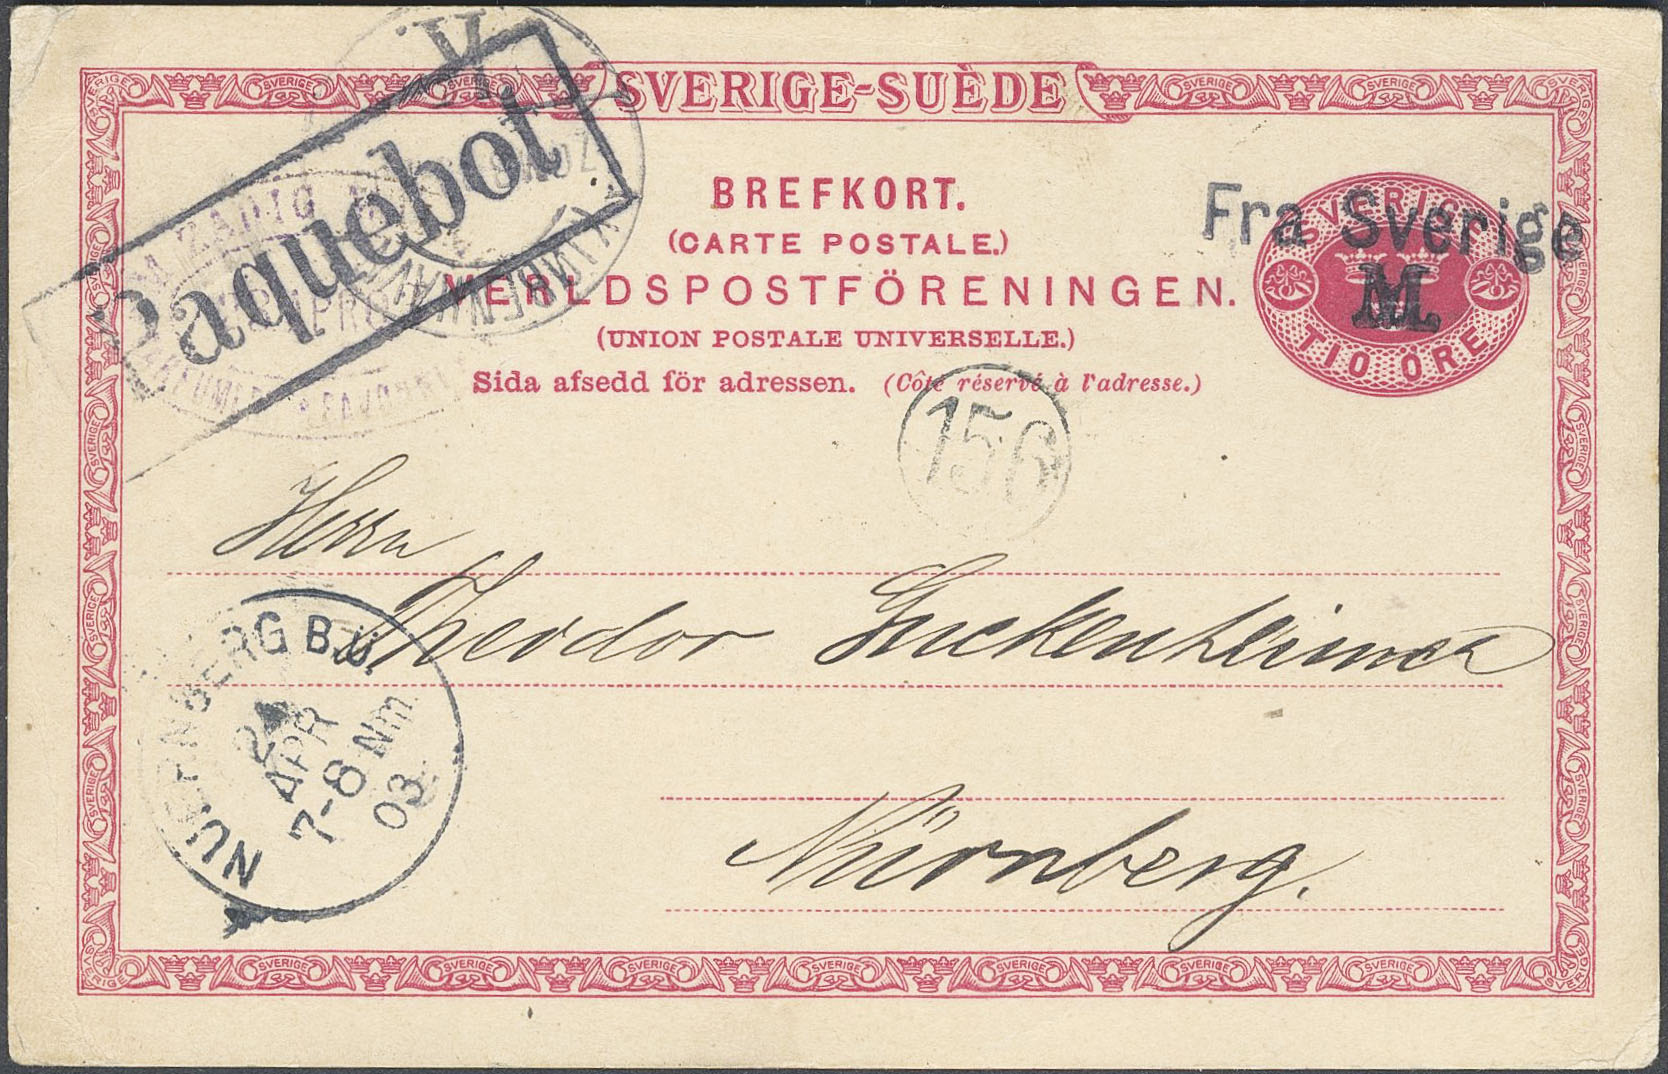 SVERIGE-SUÈDE
BREFKORT.
(CARTE POSTALE.)
VERLDSPOSTFÖRENINGEN.
(UNION POSTALE UNIVERSELLE.)
Sida afsedd för adressen. (Côté réservé à l'adresse.)
Paquebot
Fra Sverige
SVERIGE
M
TIO ÖRE
K
156
Herrn
Theodor Guckenheimer
Nürnberg.
NUERNBERG B.Ü.
24
APR
7-8 Nm.
03